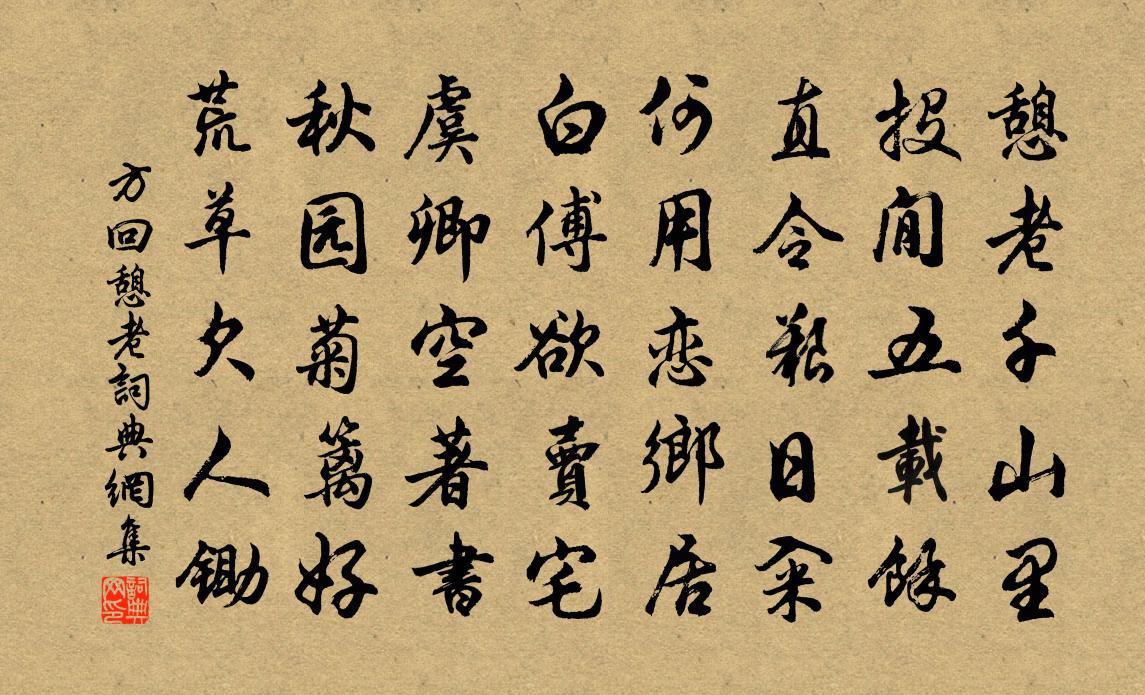 憩老千山里
投閒五載餘
直令艱日籴
何用恋鄉居
白傅欲賣宅
虞卿空著書
秋园菊篱好
荒草欠人鋤
方回憩老詞典網集
詞典网印